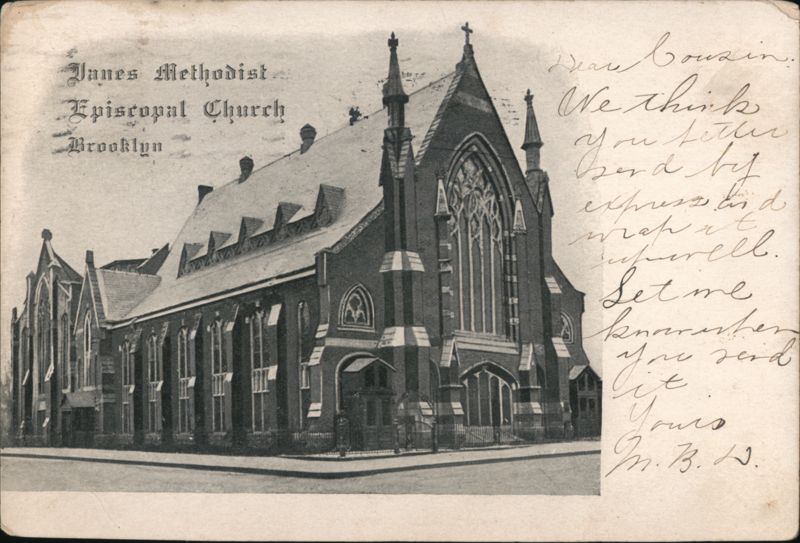 Janes Methodist
Episcopal Church
Brooklyn
Dear Cousin.
We think
you better
send by
express and
wrap it
up well.
Let me
know when
you send
it
Yours
M. B. D.